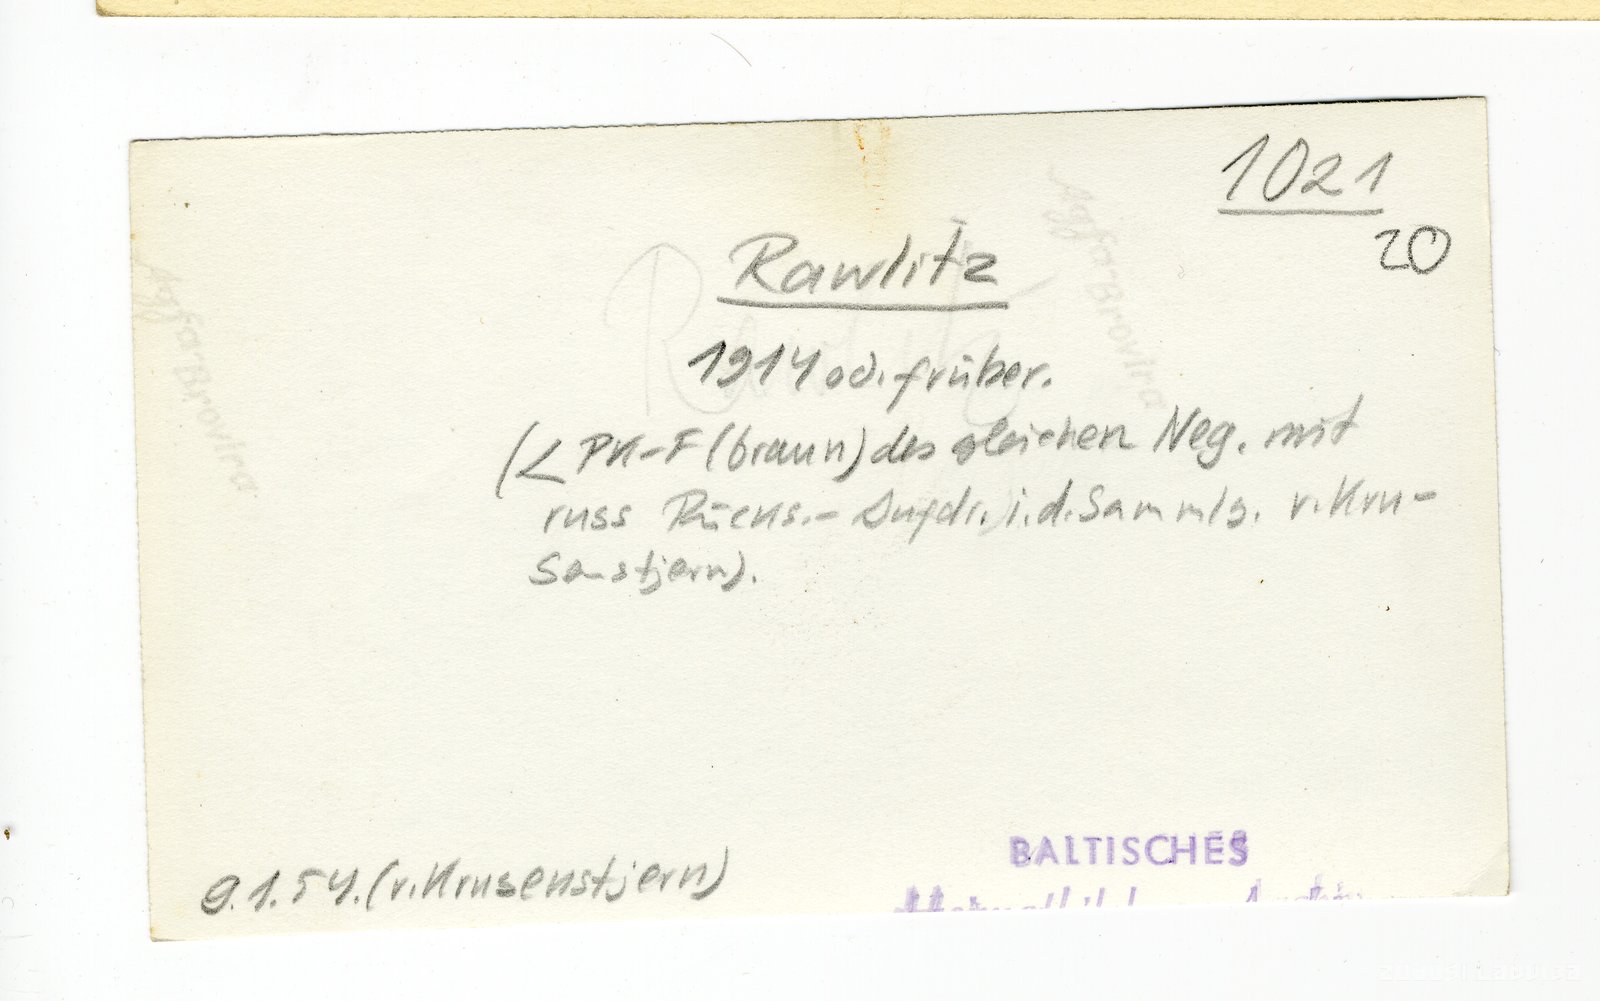 1021
20
Rawlitz
1914 od. früher.
(< PK-F (braun) des gleichen Neg. mit
russ Rücks.- i.d. Sammlg. v. Kru-
senstjern).
9.1.54. (v. Krusenstjern)
BALTISCHES
Agfa Brovira
Agfa Brovira